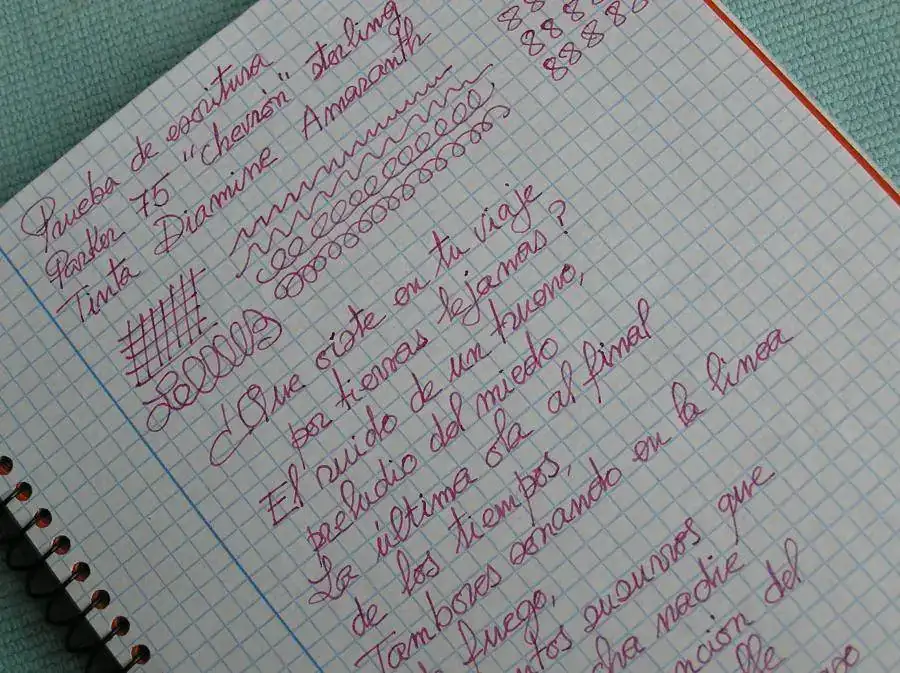 Prueba de escritura
Parker 75 "chevrón" sterling
Tinta Diamine Amaranth
888
8888
88888
¿Que oiste en tu viaje
por tierras lejanas?
El ruido de un trueno,
preludio del miedo
La última ola al final
de los tiempos,
Tambores sonando en la linea
de fuego,
susurros que
nadie
del